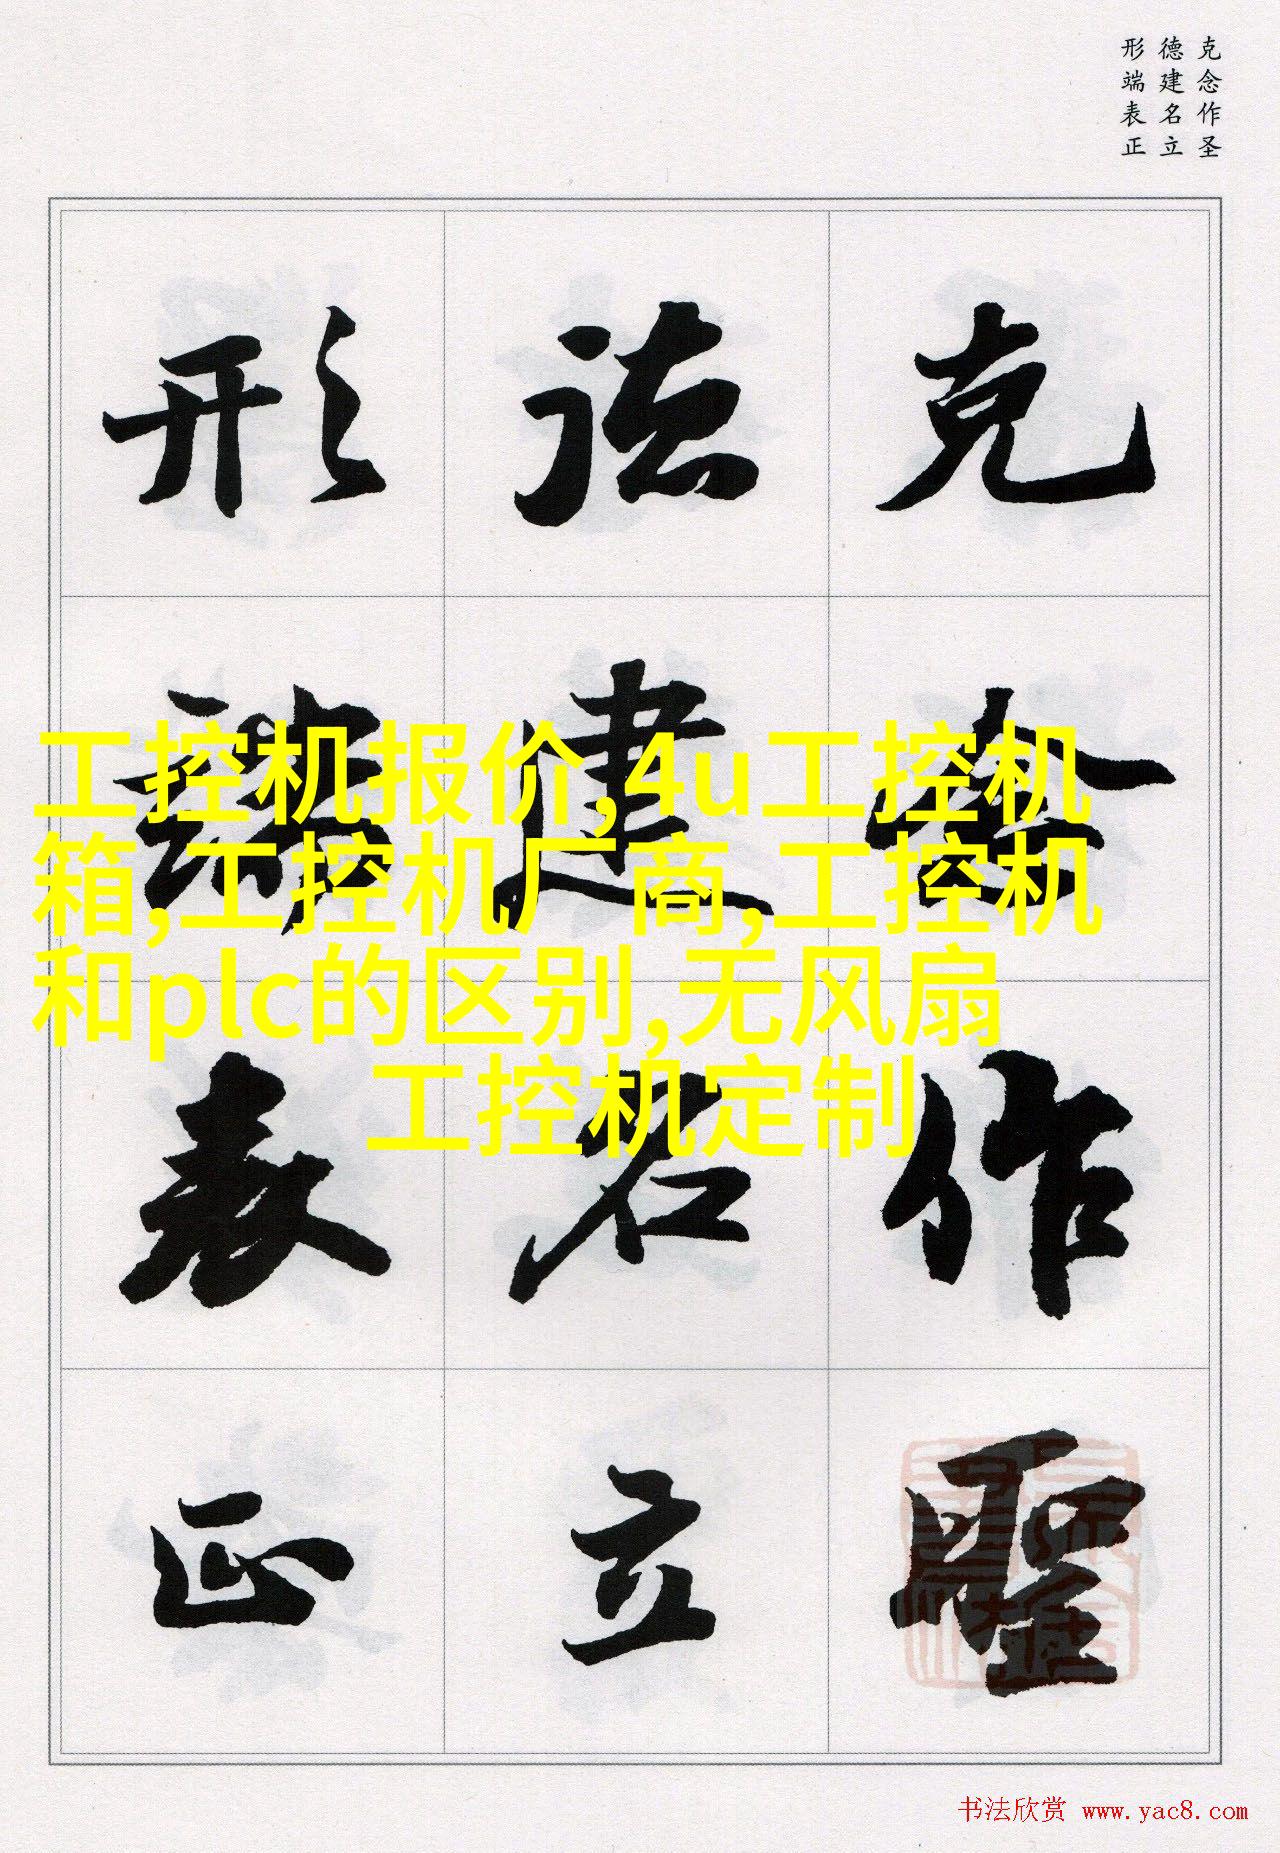 克念作圣
德建名立
形端表正
克念作聖
德建名立
形端表正
工控机报价,4u工控机
箱,工控机厂商,工控机
和plc的区别,无风扇
工控机定制
书法欣赏 www.yac8.com